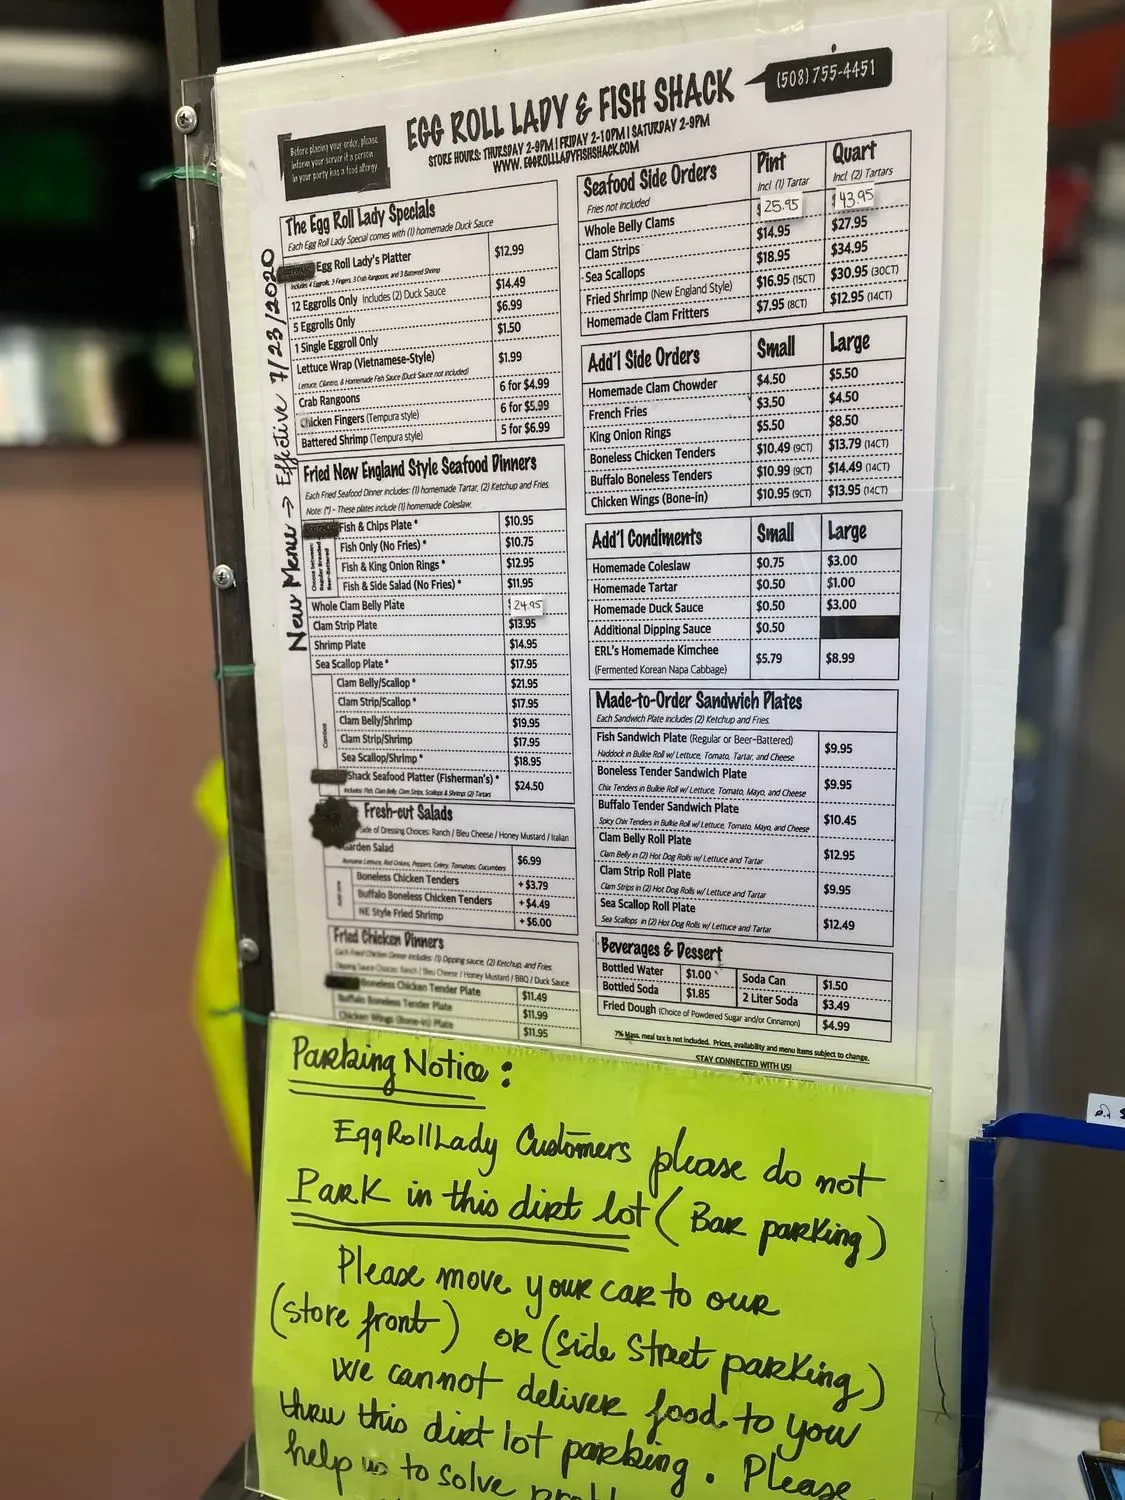 (508) 755-4451
EGG ROLL LADY & FISH SHACK
STORE HOURS: THURSDAY 2-9PM | FRIDAY 2-10PM | SATURDAY 2-9PM
WWW.EGGROLLLADYFISHSHACK.COM
Before placing your order, please
inform your server if a person
in your party has a food allergy.
New Menu → Effective 7/23/2020
The Egg Roll Lady Specials
Each Egg Roll Lady Special comes with (1) homemade Duck Sauce
Egg Roll Lady's Platter $12.99
Includes 4 Eggrolls, 3 Fingers, 3 Crab Rangoons, and 3 Battered Shrimp
12 Eggrolls Only Includes (2) Duck Sauce $14.49
5 Eggrolls Only $6.99
1 Single Eggroll Only $1.50
Lettuce Wrap (Vietnamese-Style) $1.99
Lettuce, Cilantro, & Homemade Fish Sauce (Duck Sauce not included)
Crab Rangoons 6 for $4.99
Chicken Fingers (Tempura style) 6 for $5.99
Battered Shrimp (Tempura style) 5 for $6.99
Fried New England Style Seafood Dinners
Each Fried Seafood Dinner includes: (1) homemade Tartar, (2) Ketchup and Fries.
Note: (*) - These plates include (1) homemade Coleslaw.
Fish & Chips Plate * $10.95
Choose between:
Regular Breaded
Beer-Battered
Fish Only (No Fries) * $10.75
Fish & King Onion Rings * $12.95
Fish & Side Salad (No Fries) * $11.95
Whole Clam Belly Plate $24.95
Clam Strip Plate $13.95
Shrimp Plate $14.95
Sea Scallop Plate * $17.95
Combos
Clam Belly/Scallop * $21.95
Clam Strip/Scallop * $17.95
Clam Belly/Shrimp $19.95
Clam Strip/Shrimp $17.95
Sea Scallop/Shrimp * $18.95
Shack Seafood Platter (Fisherman's) * $24.50
Includes: Fish, Clam Belly, Clam Strips, Scallops & Shrimp; (2) Tartars
Fresh-cut Salads
Side of Dressing Choices: Ranch / Bleu Cheese / Honey Mustard / Italian
Garden Salad $6.99
Romaine Lettuce, Red Onions, Peppers, Celery, Tomatoes, Cucumbers
Boneless Chicken Tenders + $3.79
Buffalo Boneless Chicken Tenders + $4.49
NE Style Fried Shrimp + $6.00
Fried Chicken Dinners
Each Fried Chicken Dinner includes: (1) Dipping sauce, (2) Ketchup, and Fries.
Dipping Sauce Choices: Ranch / Bleu Cheese / Honey Mustard / BBQ / Duck Sauce
Boneless Chicken Tender Plate $11.49
Buffalo Boneless Tender Plate $11.99
Chicken Wings (Bone-in) Plate $11.95
Seafood Side Orders Pint Quart
Fries not included Incl. (1) Tartar Incl. (2) Tartars
Whole Belly Clams $25.95 $43.95
Clam Strips $14.95 $27.95
Sea Scallops $18.95 $34.95
Fried Shrimp (New England Style) $16.95 (15CT) $30.95 (30CT)
Homemade Clam Fritters $7.95 (8CT) $12.95 (14CT)
Add'l Side Orders Small Large
Homemade Clam Chowder $4.50 $5.50
French Fries $3.50 $4.50
King Onion Rings $5.50 $8.50
Boneless Chicken Tenders $10.49 (9CT) $13.79 (14CT)
Buffalo Boneless Tenders $10.99 (9CT) $14.49 (14CT)
Chicken Wings (Bone-in) $10.95 (9CT) $13.95 (14CT)
Add'l Condiments Small Large
Homemade Coleslaw $0.75 $3.00
Homemade Tartar $0.50 $1.00
Homemade Duck Sauce $0.50 $3.00
Additional Dipping Sauce $0.50
ERL's Homemade Kimchee $5.79 $8.99
(Fermented Korean Napa Cabbage)
Made-to-Order Sandwich Plates
Each Sandwich Plate includes (2) Ketchup and Fries.
Fish Sandwich Plate (Regular or Beer-Battered) $9.95
Haddock in Bulkie Roll w/ Lettuce, Tomato, Tartar, and Cheese
Boneless Tender Sandwich Plate $9.95
Chix Tenders in Bulkie Roll w/ Lettuce, Tomato, Mayo, and Cheese
Buffalo Tender Sandwich Plate $10.45
Spicy Chix Tenders in Bulkie Roll w/ Lettuce, Tomato, Mayo, and Cheese
Clam Belly Roll Plate $12.95
Clam Belly in (2) Hot Dog Rolls w/ Lettuce and Tartar
Clam Strip Roll Plate $9.95
Clam Strips in (2) Hot Dog Rolls w/ Lettuce and Tartar
Sea Scallop Roll Plate $12.49
Sea Scallops in (2) Hot Dog Rolls w/ Lettuce and Tartar
Beverages & Dessert
Bottled Water $1.00 Soda Can $1.50
Bottled Soda $1.85 2 Liter Soda $3.49
Fried Dough (Choice of Powdered Sugar and/or Cinnamon) $4.99
7% Mass. meal tax is not included. Prices, availability and menu items subject to change.
STAY CONNECTED WITH US!
Parking Notice:
EggRollLady Customers please do not
PARK in this dirt lot (Bar parking)
Please move your car to our
(store front) or (side street parking)
we cannot deliver food to you
thru this dirt lot parking. Please
help us to solve